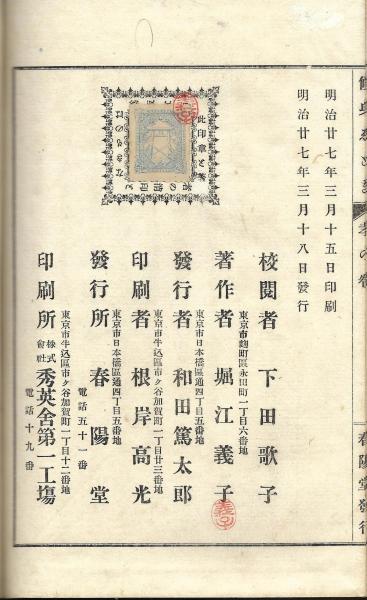 明治廿七年三月十五日印刷
明治廿七年三月十八日發行
此印章と
校閱者 下田歌子
東京市麴町區永田町一丁目六番地
著作者 堀江義子
東京市日本橋區通四丁目五番地
發行者 和田篤太郎
東京市牛込區市ヶ谷加賀町一丁目廿三番地
印刷者 根岸高光
東京市日本橋區通四丁目五番地
發行所 春陽堂
電話五十一番
東京市牛込區市ヶ谷加賀町一丁目十二番地
印刷所 株式會社 秀英舍第一工場
電話十九番
春陽堂發行